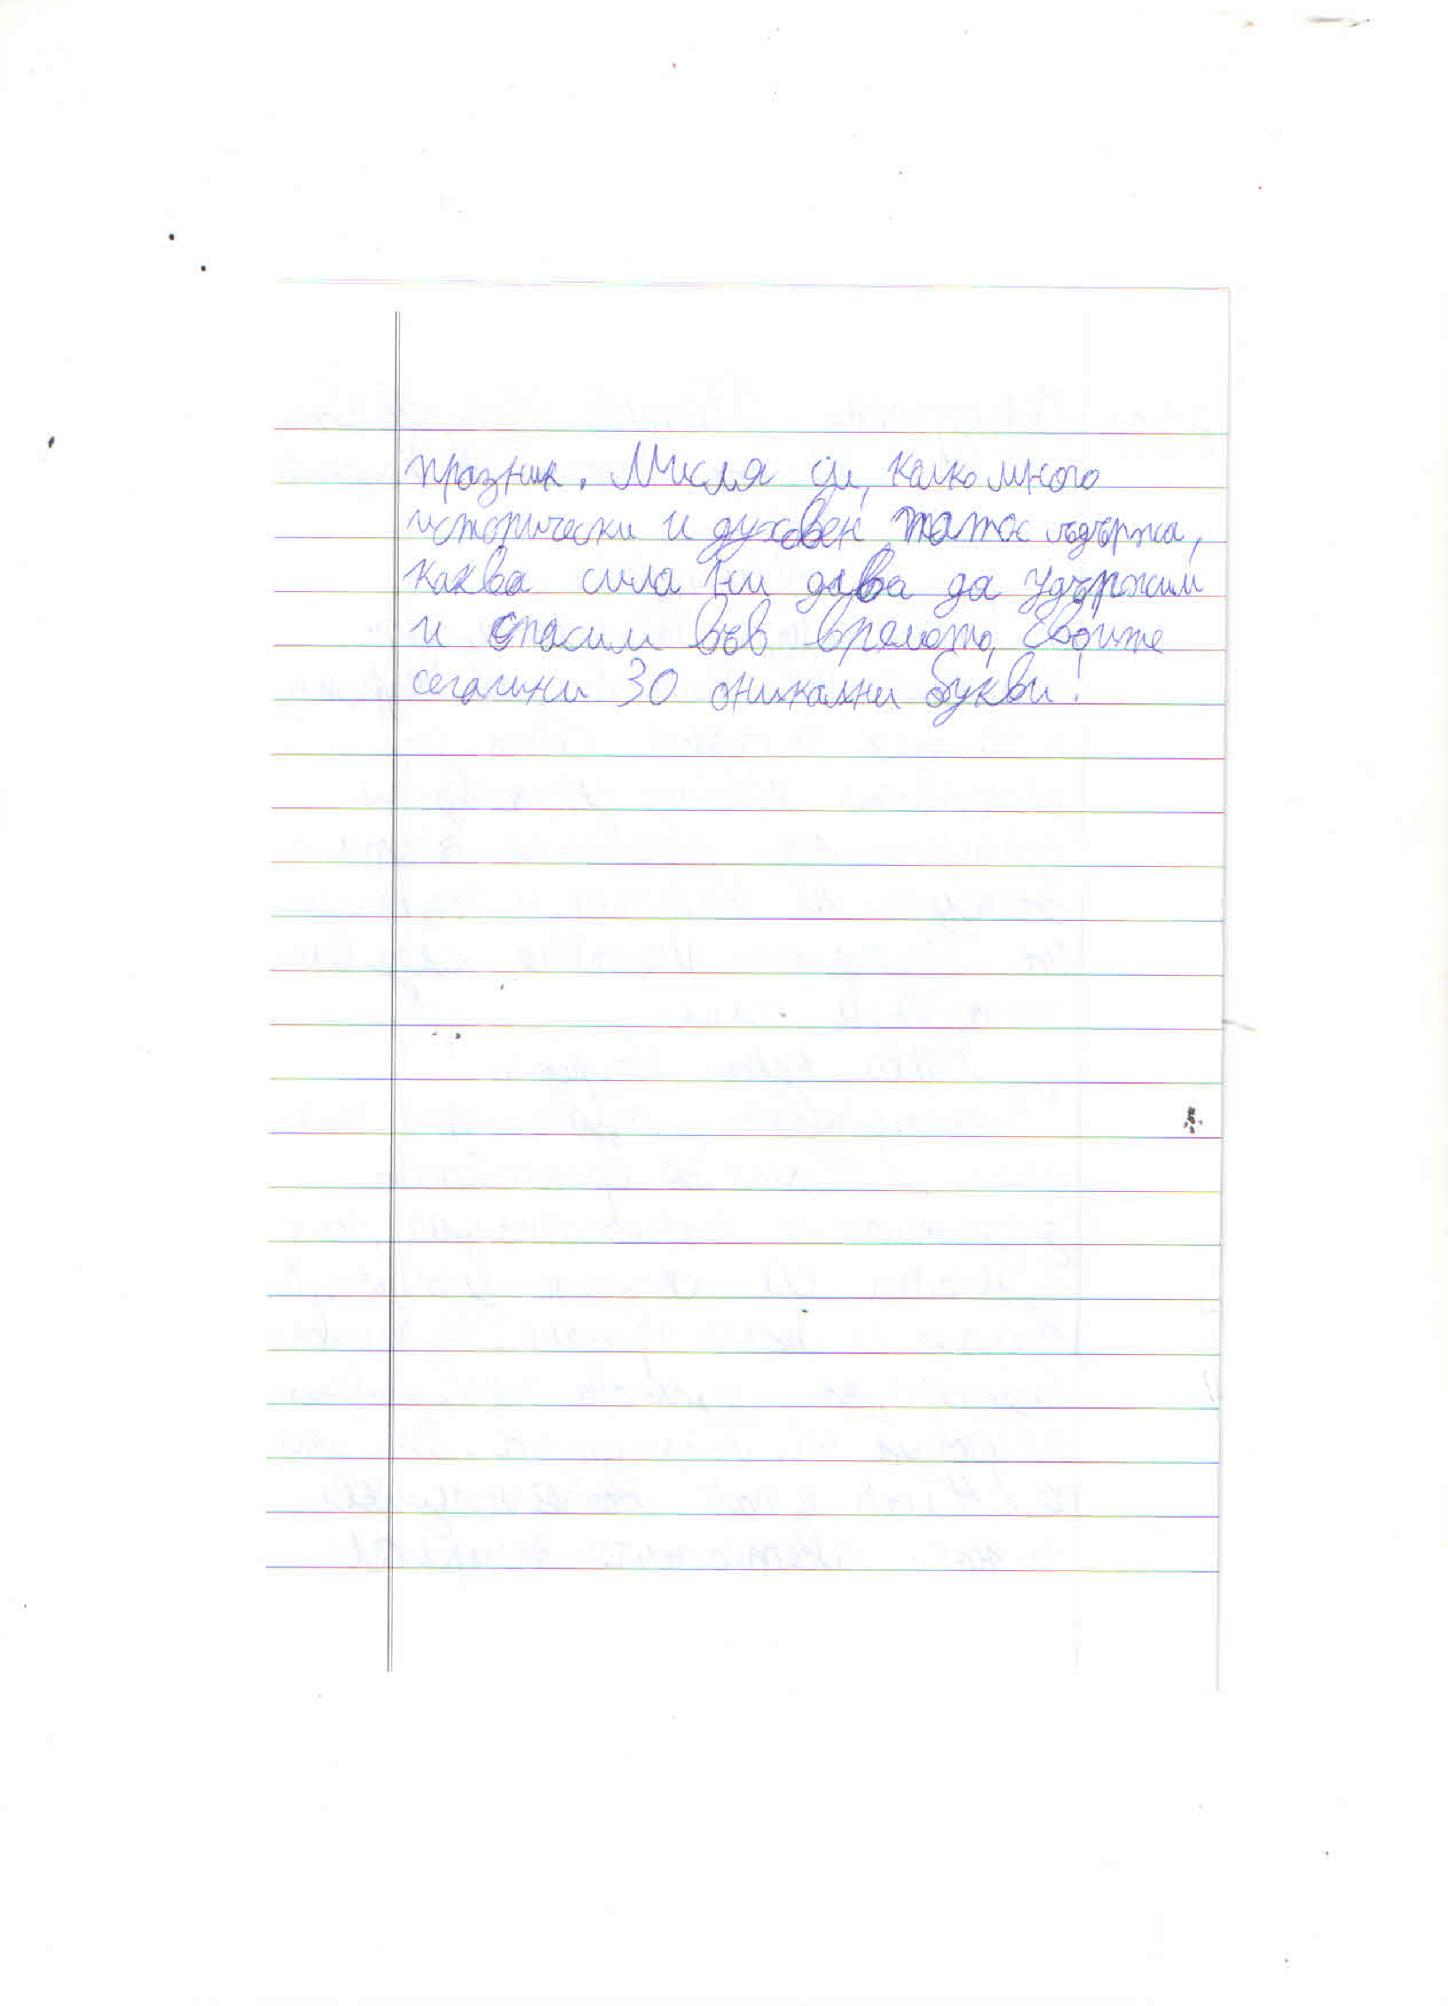 празник. Мисля си, колко много
исторически и духовен патос съдържа,
каква сила ни дава да удържим
и спасим във времето, своите
сегашни 30 оникални букви!